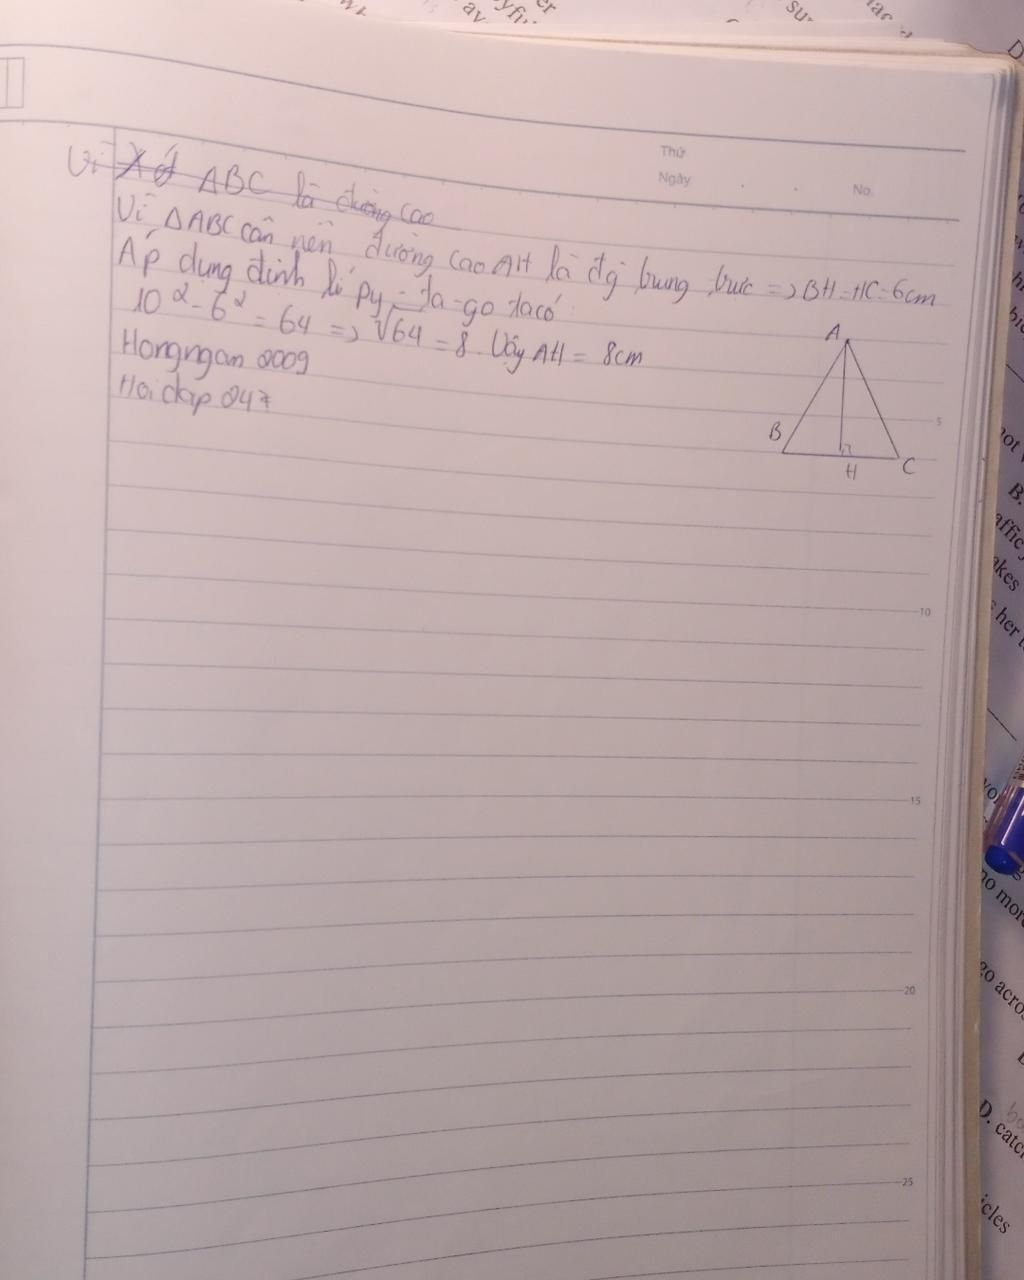 Thứ
Ngày
No.
Vì Xét ABC là đường cao
Vì △ABC cân nên đường cao AH là đg trung trực => BH=HC=6cm
Áp dụng định lí py-ta-go ta có
10² - 6² = 64 => √64 = 8. Vậy AH = 8cm
Hongngan 2009
Hoidap 247
A
B
H
C
5
10
15
20
25
not
B.
her
no more
go acros
D. catc
icles